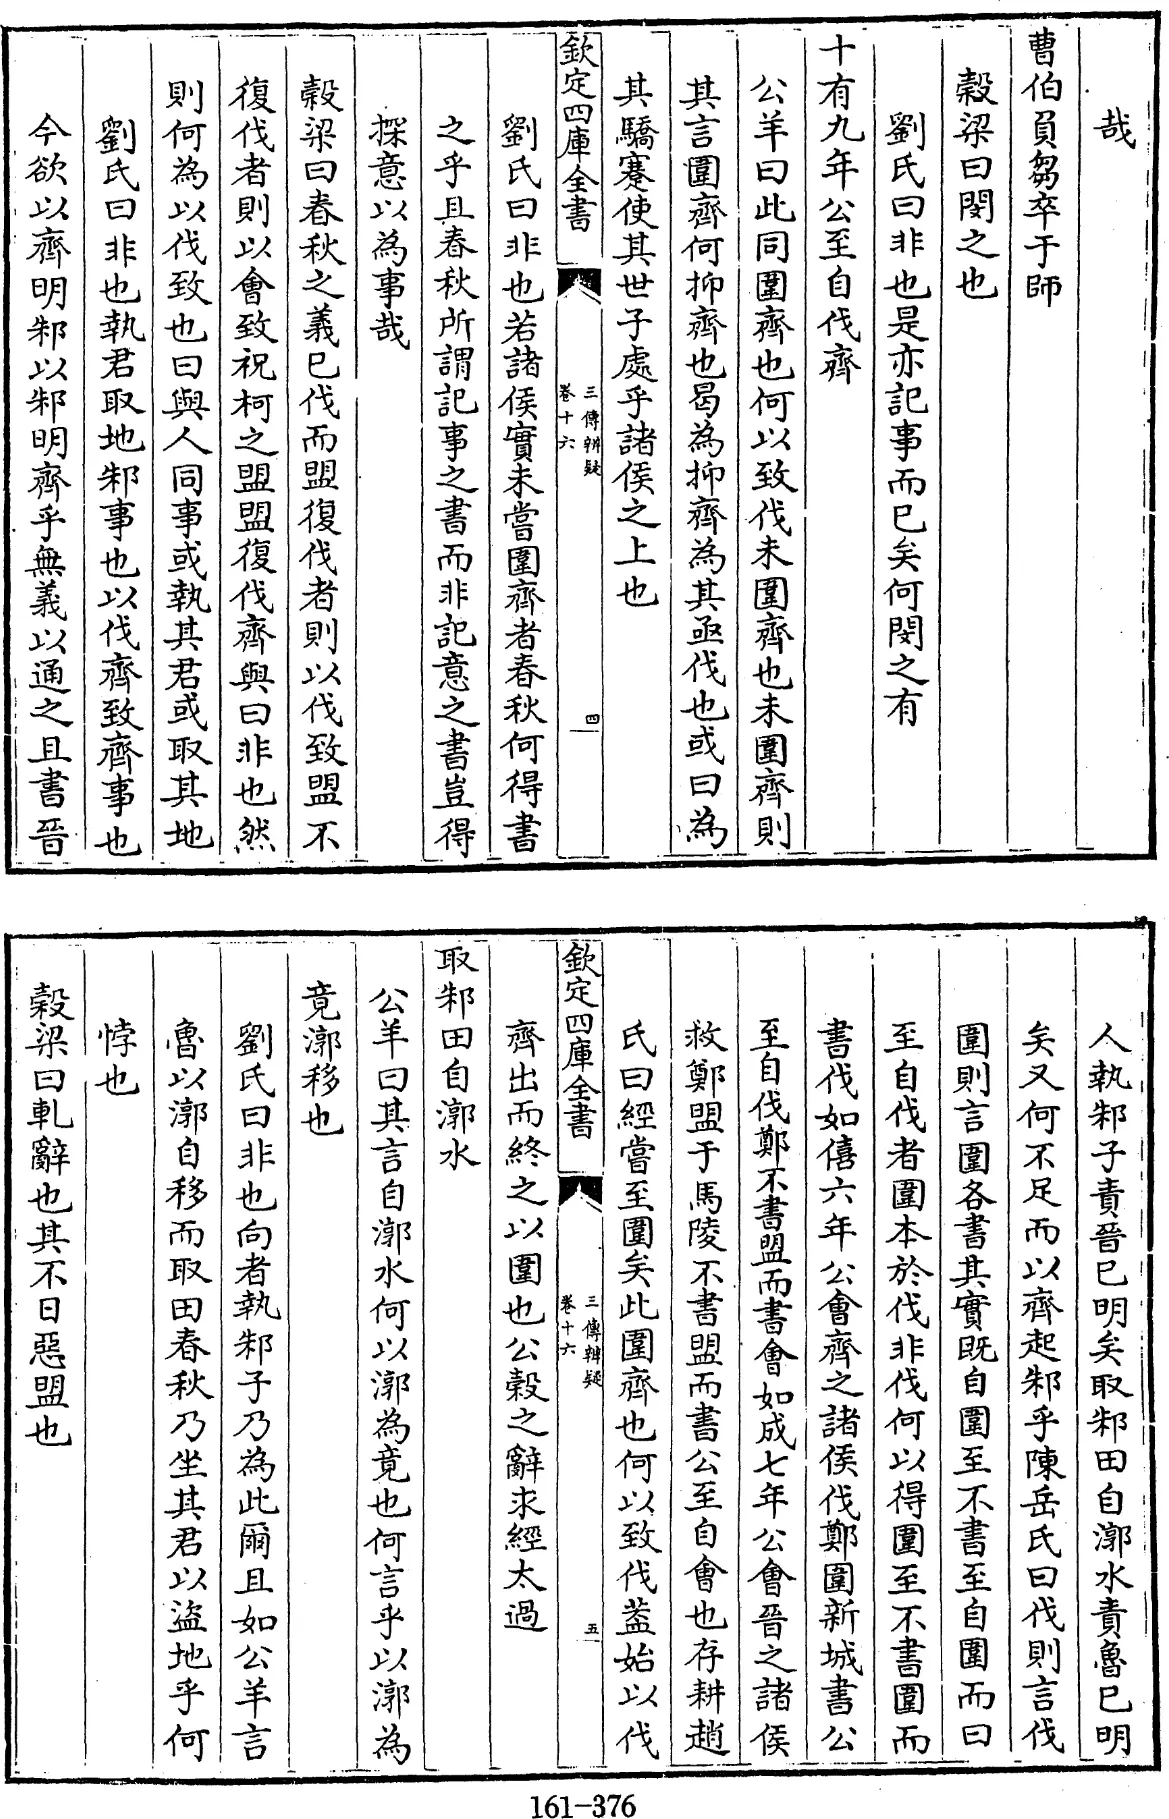 哉
曹伯負芻卒于師
穀梁曰閔之也
劉氏曰非也是亦記事而已矣何閔之有
十有九年公至自伐齊
公羊曰此同圍齊也何以致伐未圍齊也未圍齊則
其言圍齊何抑齊也曷為抑齊為其亟伐也或曰為
其驕蹇使其世子處乎諸侯之上也
欽定四庫全書
三傳辨疑
卷十六
四
劉氏曰非也若諸侯實未嘗圍齊者春秋何得書
之乎且春秋所謂記事之書而非記意之書豈得
探意以為事哉
穀梁曰春秋之義已伐而盟復伐者則以伐致盟不
復伐者則以會致祝柯之盟盟復伐齊與曰非也然
則何為以伐致也曰與人同事或執其君或取其地
劉氏曰非也執君取地邾事也以伐齊致齊事也
今欲以齊明邾以邾明齊乎無義以通之且書晉
人執邾子責晉已明矣取邾田自漷水責魯已明
矣又何不足而以齊起邾乎陳岳氏曰伐則言伐
圍則言圍各書其實既自圍至不書至自圍而曰
至自伐者圍本於伐非伐何以得圍至不書圍而
書伐如僖六年公會齊之諸侯伐鄭圍新城書公
至自伐鄭不書盟而書會如成七年公會晉之諸侯
救鄭盟于馬陵不書盟而書公至自會也存耕趙
氏曰經嘗至圍矣此圍齊也何以致伐葢始以伐
欽定四庫全書
三傳辨疑
卷十六
五
齊出而終之以圍也公穀之辭求經太過
取邾田自漷水
公羊曰其言自漷水何以漷為竟也何言乎以漷為
竟漷移也
劉氏曰非也向者執邾子乃為此爾且如公羊言
魯以漷自移而取田春秋乃坐其君以盜地乎何
悖也
穀梁曰軋辭也其不日惡盟也
161-376